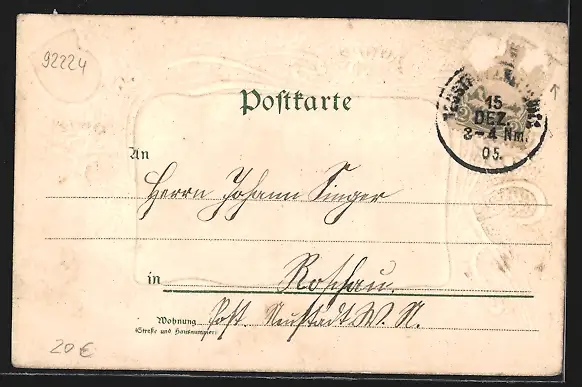 92224
Postkarte
15
DEZ.
3-4 Nm.
05.
An
Herrn Johann Singer
in Roschau.
Wohnung Post. Neustadt W. N.
(Straße und Hausnummer)
20 €